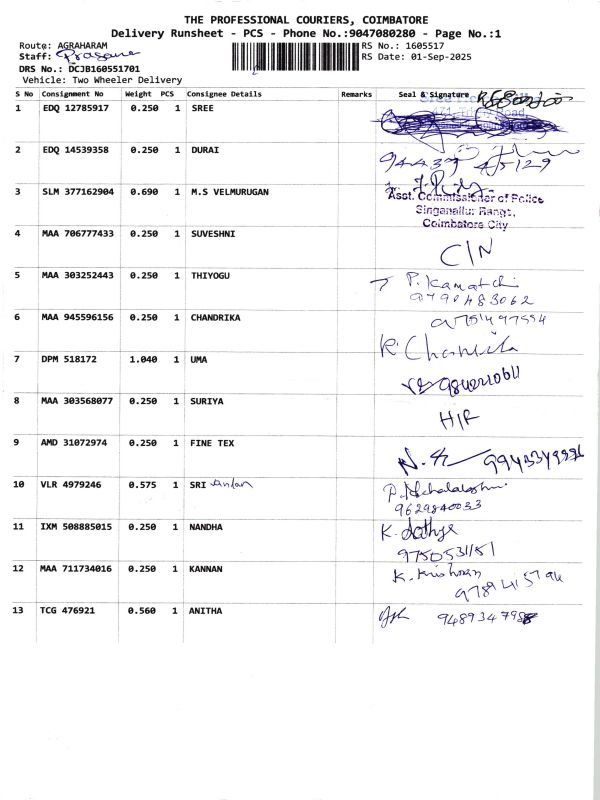 THE PROFESSIONAL COURIERS, COIMBATORE
Delivery Runsheet - PCS - Phone No.:9047080280 - Page No.:1
Route: AGRAHARAM
RS No.: 1605517
Staff: Prasanna
RS Date: 01-Sep-2025
DRS No.: DCJB160551701
Vehicle: Two Wheeler Delivery
S No Consignment No Weight PCS Consignee Details Remarks Seal & Signature
1 EDQ 12785917 0.250 1 SREE
2 EDQ 14539358 0.250 1 DURAI
94439 45129
3 SLM 377162904 0.690 1 M.S VELMURUGAN
Asst. Commissioner of Police
Singanallur Range,
Coimbatore City
4 MAA 706777433 0.250 1 SUVESHNI
C/N
5 MAA 303252443 0.250 1 THIYOGU
P. Kamatchi
9790483062
6 MAA 945596156 0.250 1 CHANDRIKA
7 DPM 518172 1.040 1 UMA
8 MAA 303568077 0.250 1 SURIYA
H/R
9 AMD 31072974 0.250 1 FINE TEX
10 VLR 4979246 0.575 1 SRI
9629840033
11 IXM 508885015 0.250 1 NANDHA
K. Sathya
9750531151
12 MAA 711734016 0.250 1 KANNAN
K. Krishnan
9789415794
13 TCG 476921 0.560 1 ANITHA